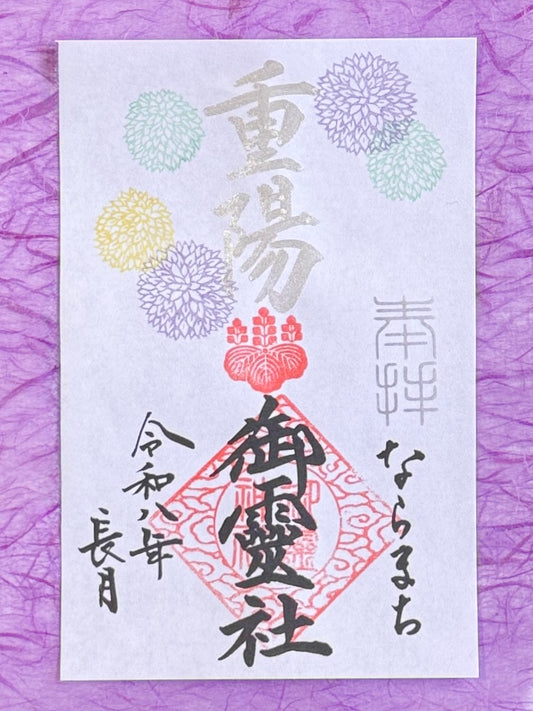 奉拝
ならまち
重陽
御靈社
令和八年
長月